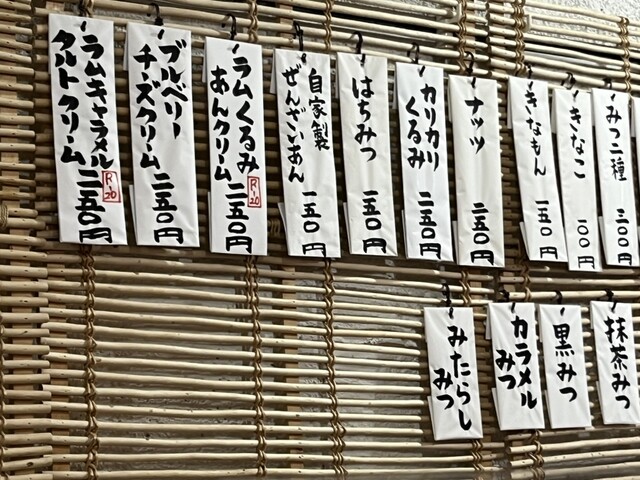 みつ二種 三〇〇円
きなこ 一〇〇円
きなもん 一五〇円
ナッツ 二五〇円
カリカリ
くるみ 二五〇円
はちみつ 一五〇円
自家製
ぜんざいあん 一五〇円
ラムくるみ
あんクリーム 二五〇円
R-20
ブルベリー
チーズクリーム 二五〇円
ラムキャラメル
タルトクリーム 二五〇円
R-20
抹茶みつ
黒みつ
カラメル
みつ
みたらし
みつ